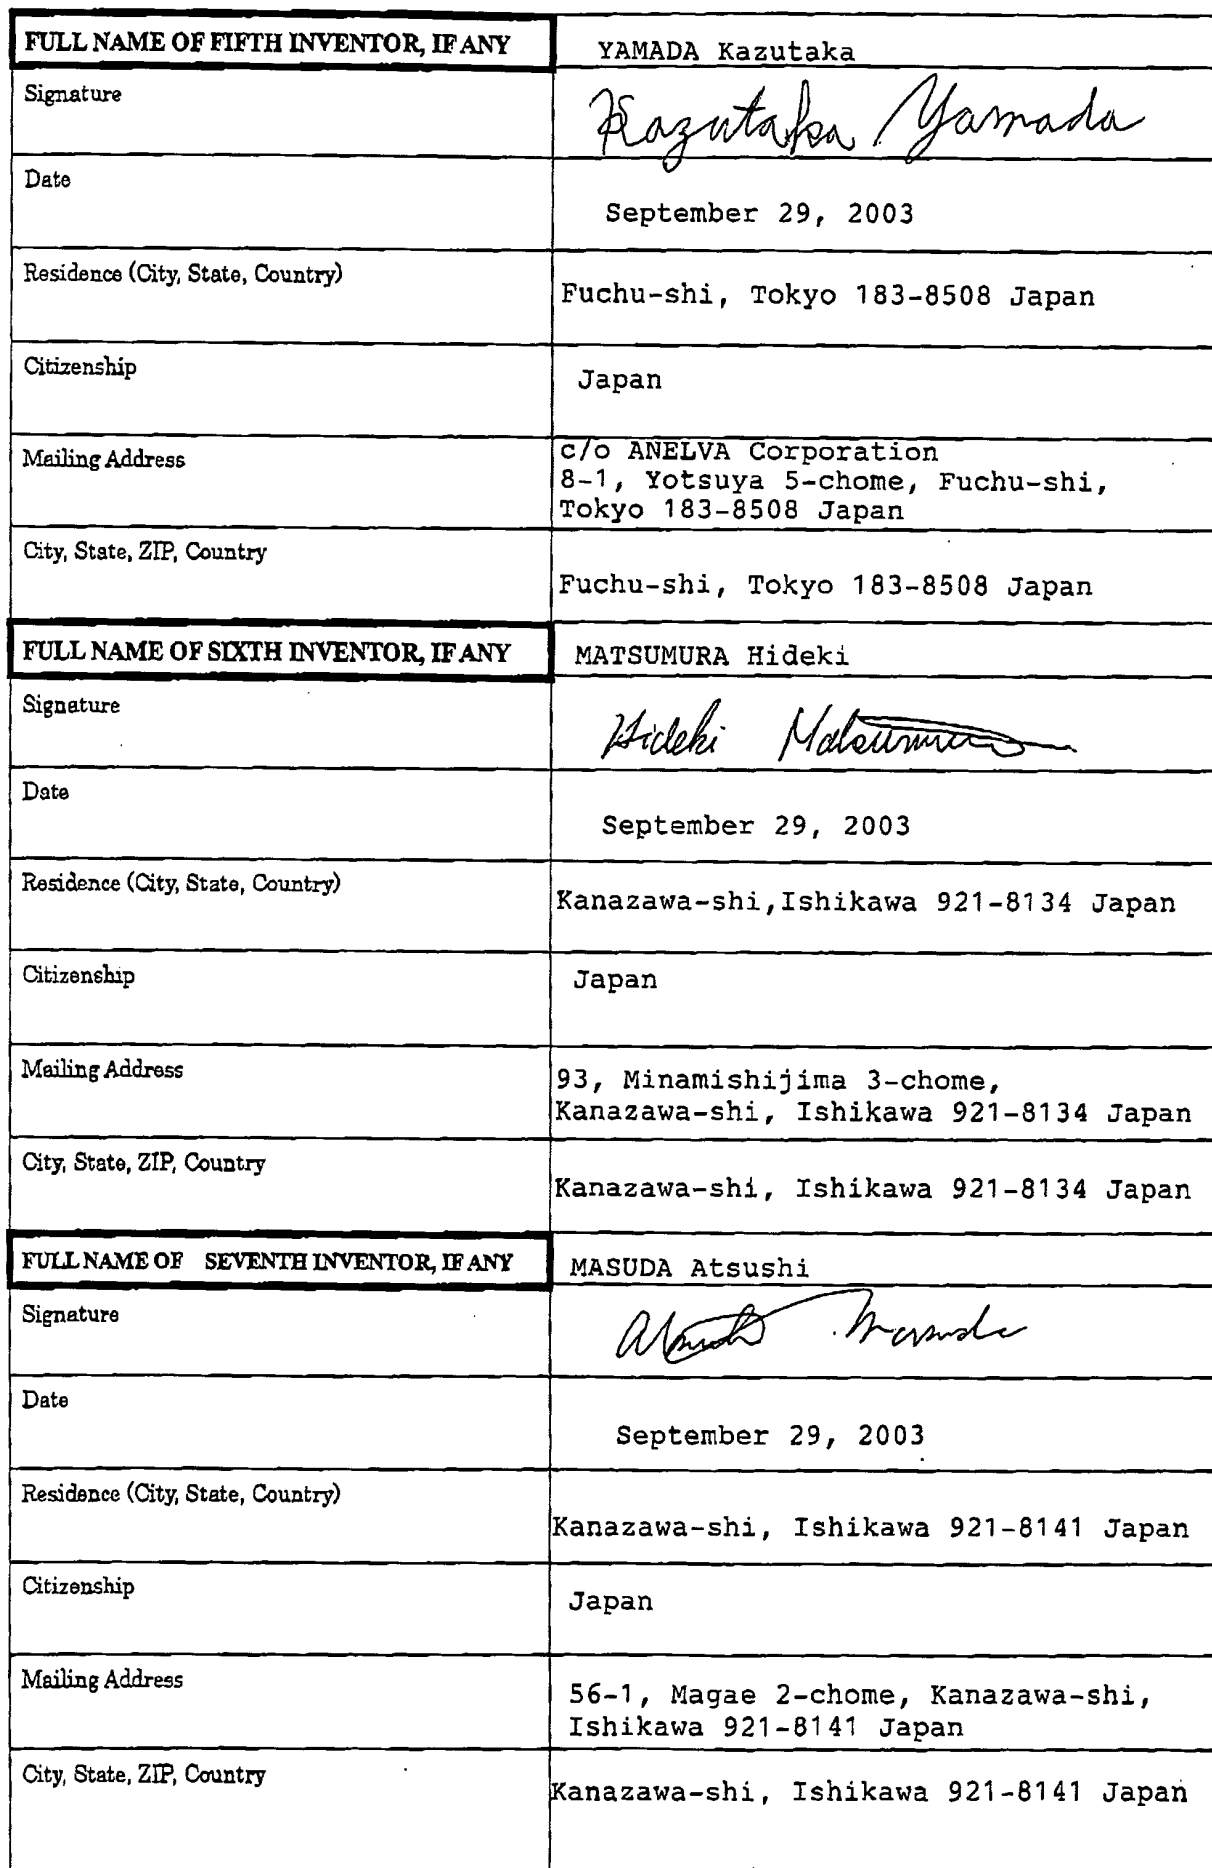 FULL NAME OF FIFTH INVENTOR, IF ANY
YAMADA Kazutaka
Signature
Kazutaka Yamada
Date
September 29, 2003
Residence (City, State, Country)
Fuchu-shi, Tokyo 183-8508 Japan
Citizenship
Japan
Mailing Address
c/o ANELVA Corporation
8-1, Yotsuya 5-chome, Fuchu-shi,
Tokyo 183-8508 Japan
City, State, ZIP, Country
Fuchu-shi, Tokyo 183-8508 Japan
FULL NAME OF SIXTH INVENTOR, IF ANY
MATSUMURA Hideki
Signature
Hideki Matsumura
Date
September 29, 2003
Residence (City, State, Country)
Kanazawa-shi,Ishikawa 921-8134 Japan
Citizenship
Japan
Mailing Address
93, Minamishijima 3-chome,
Kanazawa-shi, Ishikawa 921-8134 Japan
City, State, ZIP, Country
Kanazawa-shi, Ishikawa 921-8134 Japan
FULL NAME OF SEVENTH INVENTOR, IF ANY
MASUDA Atsushi
Signature
Atsushi Masuda
Date
September 29, 2003
Residence (City, State, Country)
Kanazawa-shi, Ishikawa 921-8141 Japan
Citizenship
Japan
Mailing Address
56-1, Magae 2-chome, Kanazawa-shi,
Ishikawa 921-8141 Japan
City, State, ZIP, Country
Kanazawa-shi, Ishikawa 921-8141 Japan